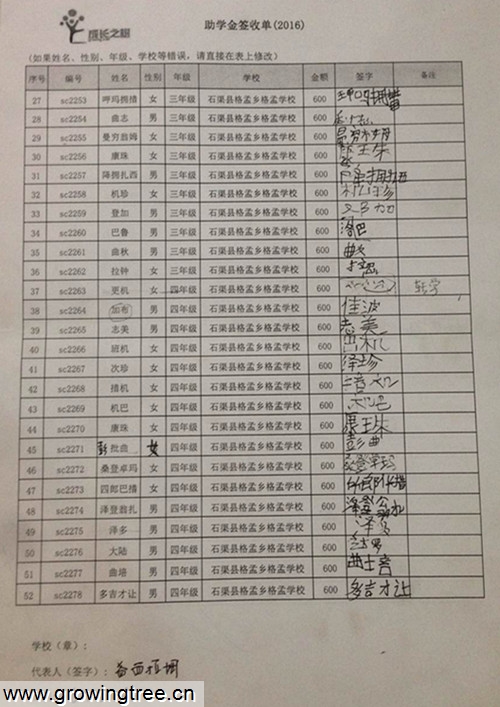 成长之树
助学金签收单(2016)
(如果姓名、性别、年级、学校等错误，请直接在表上修改)
序号 编号 姓名 性别 年级 学校 金额 签字 备注
27 sc2253 呷玛拥措 女 三年级 石渠县格孟乡格孟学校 600
28 sc2254 曲志 男 三年级 石渠县格孟乡格孟学校 600
29 sc2255 曼穷翁姆 女 三年级 石渠县格孟乡格孟学校 600
30 sc2256 康珠 女 三年级 石渠县格孟乡格孟学校 600
31 sc2257 降拥扎西 男 三年级 石渠县格孟乡格孟学校 600
32 sc2258 机珍 女 三年级 石渠县格孟乡格孟学校 600 机珍
33 sc2259 登加 男 三年级 石渠县格孟乡格孟学校 600
34 sc2260 巴鲁 男 三年级 石渠县格孟乡格孟学校 600
35 sc2261 曲秋 男 三年级 石渠县格孟乡格孟学校 600
36 sc2262 拉钟 女 三年级 石渠县格孟乡格孟学校 600
37 sc2263 更机 女 四年级 石渠县格孟乡格孟学校 600 转学
38 sc2264 加布 男 四年级 石渠县格孟乡格孟学校 600 佳波
39 sc2265 志美 男 四年级 石渠县格孟乡格孟学校 600 志美
40 sc2266 班机 女 四年级 石渠县格孟乡格孟学校 600
41 sc2267 次珍 女 四年级 石渠县格孟乡格孟学校 600 泽珍
42 sc2268 措机 女 四年级 石渠县格孟乡格孟学校 600
43 sc2269 机巴 女 四年级 石渠县格孟乡格孟学校 600
44 sc2270 康珠 女 四年级 石渠县格孟乡格孟学校 600
45 sc2271 彭批曲 女 四年级 石渠县格孟乡格孟学校 600 彭曲
46 sc2272 桑登卓玛 女 四年级 石渠县格孟乡格孟学校 600
47 sc2273 四郎巴措 女 四年级 石渠县格孟乡格孟学校 600
48 sc2274 泽登翁扎 男 四年级 石渠县格孟乡格孟学校 600
49 sc2275 泽多 男 四年级 石渠县格孟乡格孟学校 600 泽多
50 sc2276 大陆 男 四年级 石渠县格孟乡格孟学校 600
51 sc2277 曲培 男 四年级 石渠县格孟乡格孟学校 600
52 sc2278 多吉才让 男 四年级 石渠县格孟乡格孟学校 600 多吉才让
学校（章）：
代表人（签字）：
www.growingtree.cn